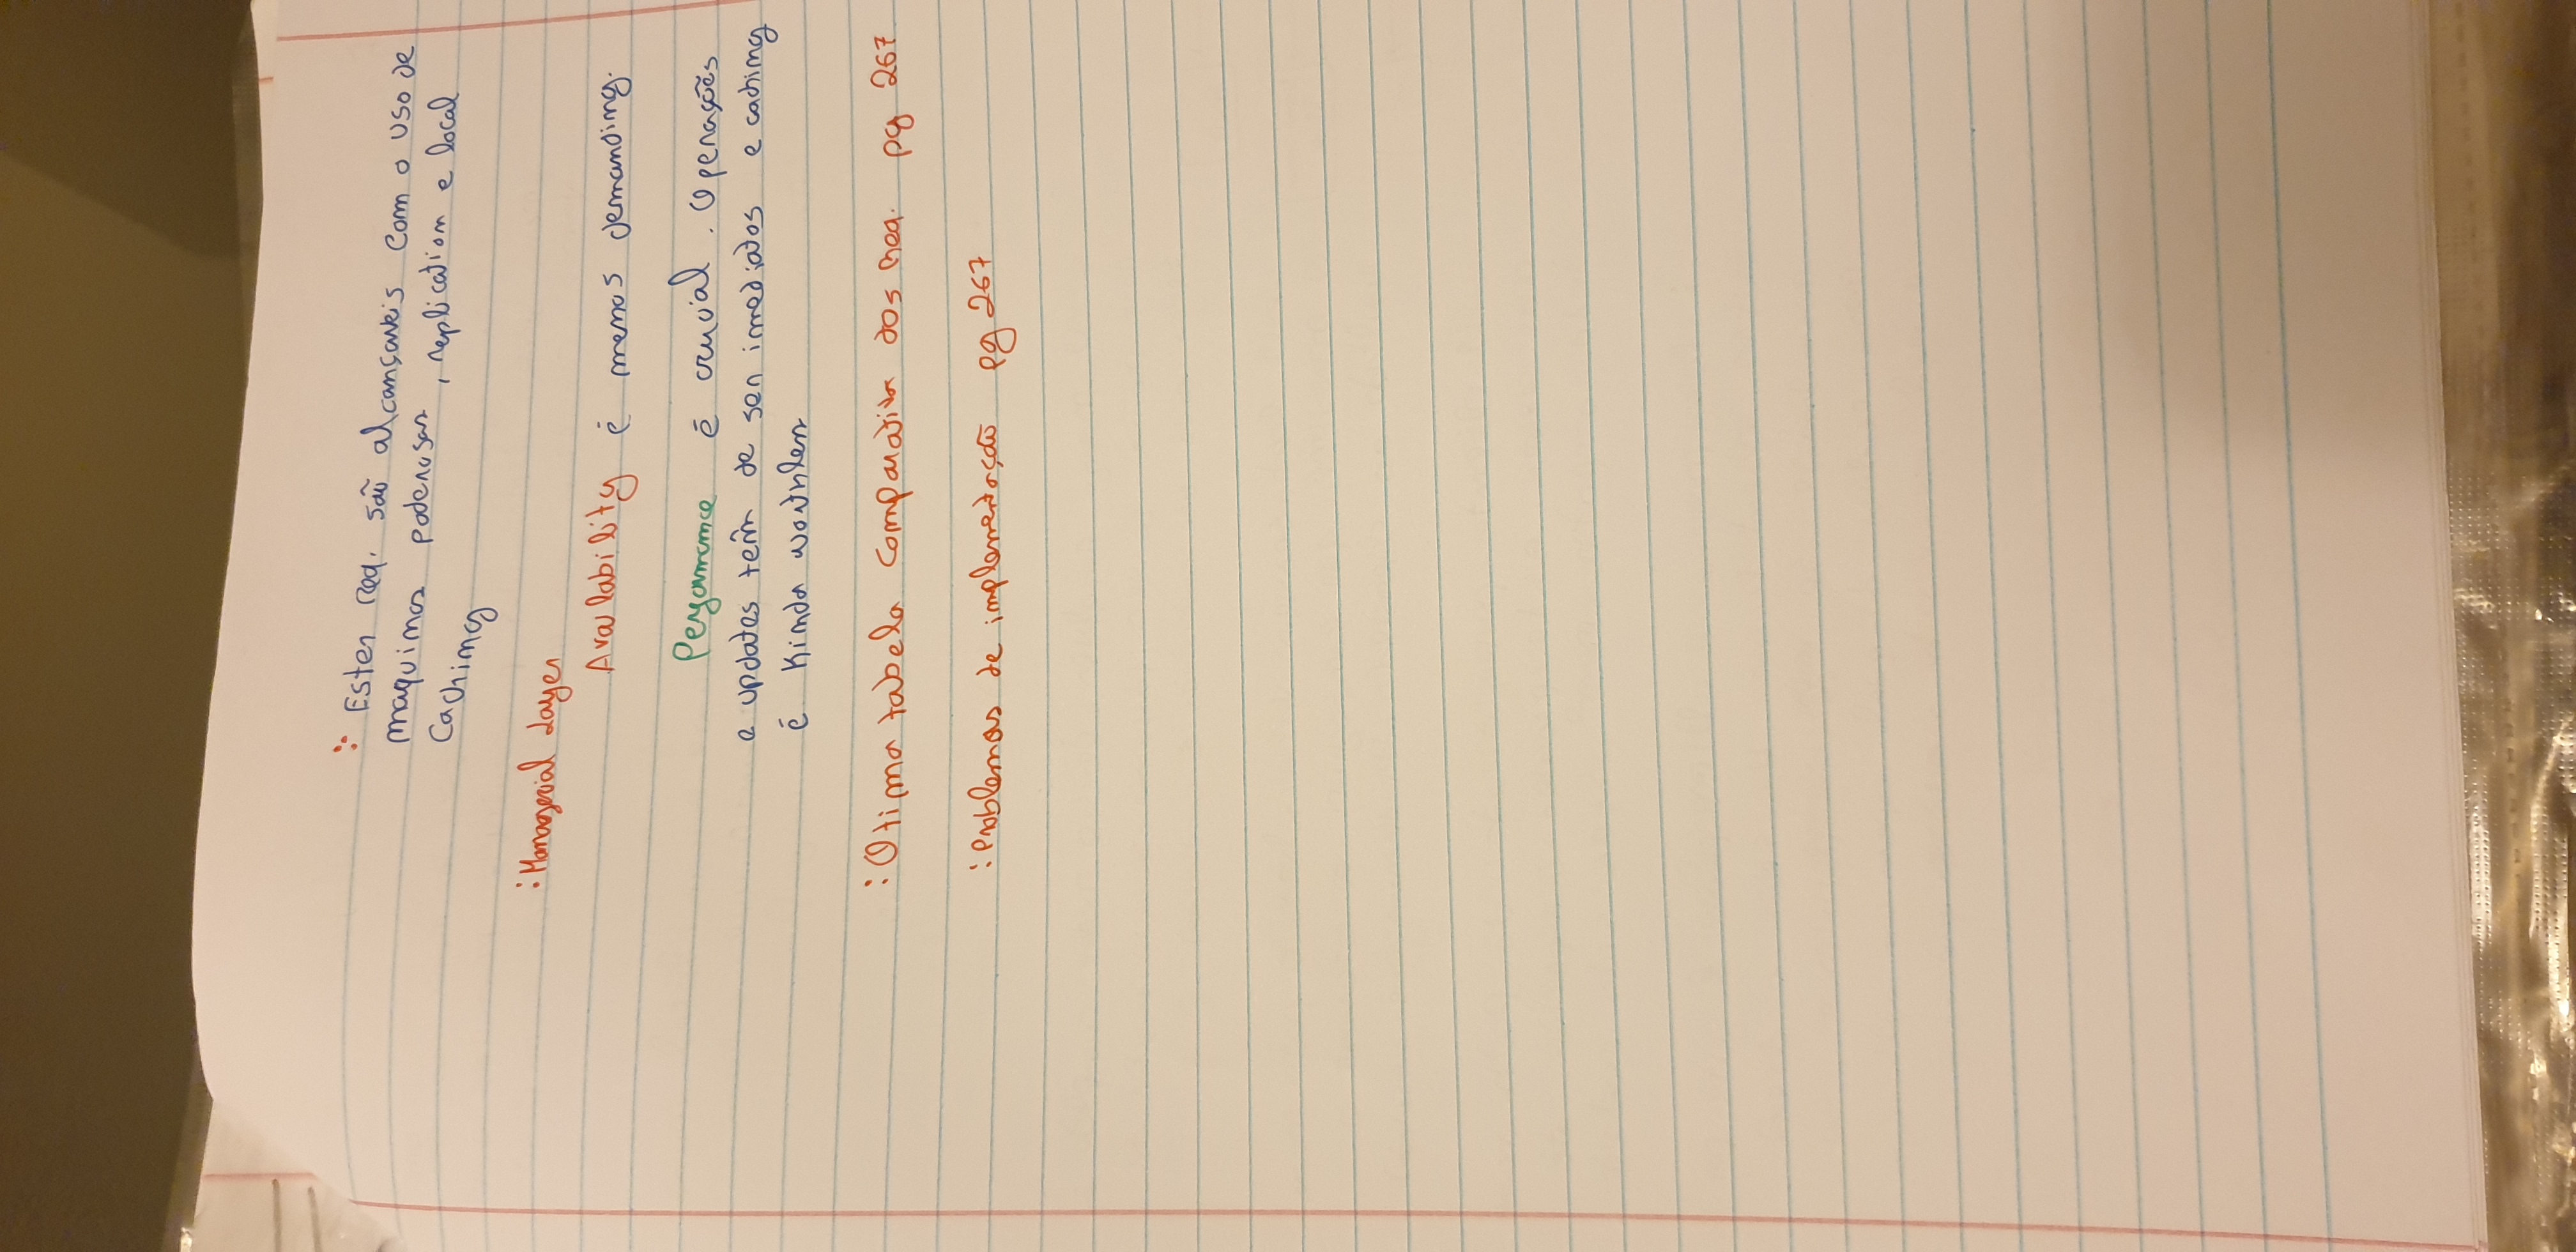 :· Estes req. são alcançaveis com o uso de
maquinas poderosas, replication e local
Caching
: Managerial Layer
Availability é menos demanding.
Performance é crucial. Operações
e updates têm de ser imediatos e caching
é Kinda worthless
: Otima tabela comparativa dos req. pg 267
: Problemas de implementação pg 267